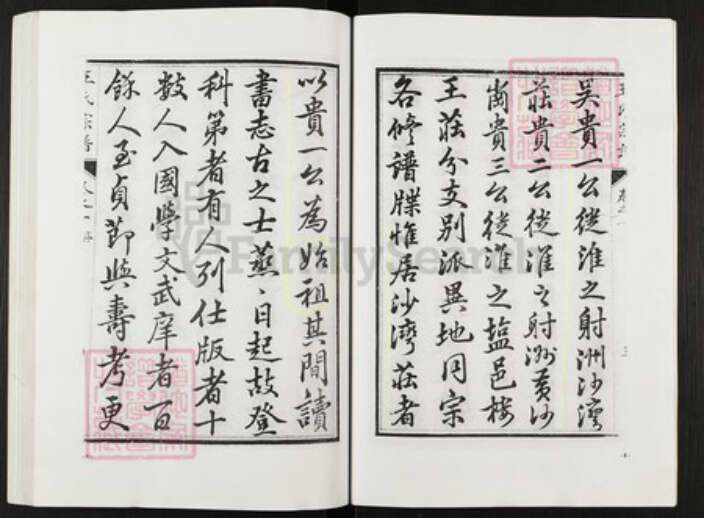 吴貴一公從淮之射洲沙灣
莊貴二公從淮之射洲黄沙
崗貴三公從淮之塩邑樓
王莊分支别派異地同宗
各修譜牒惟居沙灣莊者
以貴一公為始祖其間讀
書志古之士蒸、日起故登
科第者有人列仕版者十
数人入國學文武庠者百
餘人至貞節與壽考更
王氏宗譜
FamilySearch